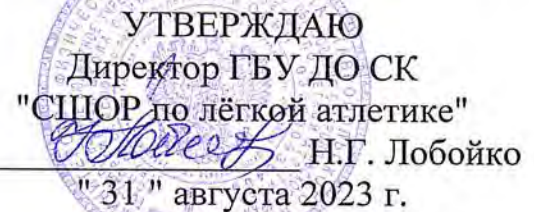 УТВЕРЖДАЮ
Директор ГБУ ДО СК
"СШОР по лёгкой атлетике"
Н.Г. Лобойко
" 31 " августа 2023 г.